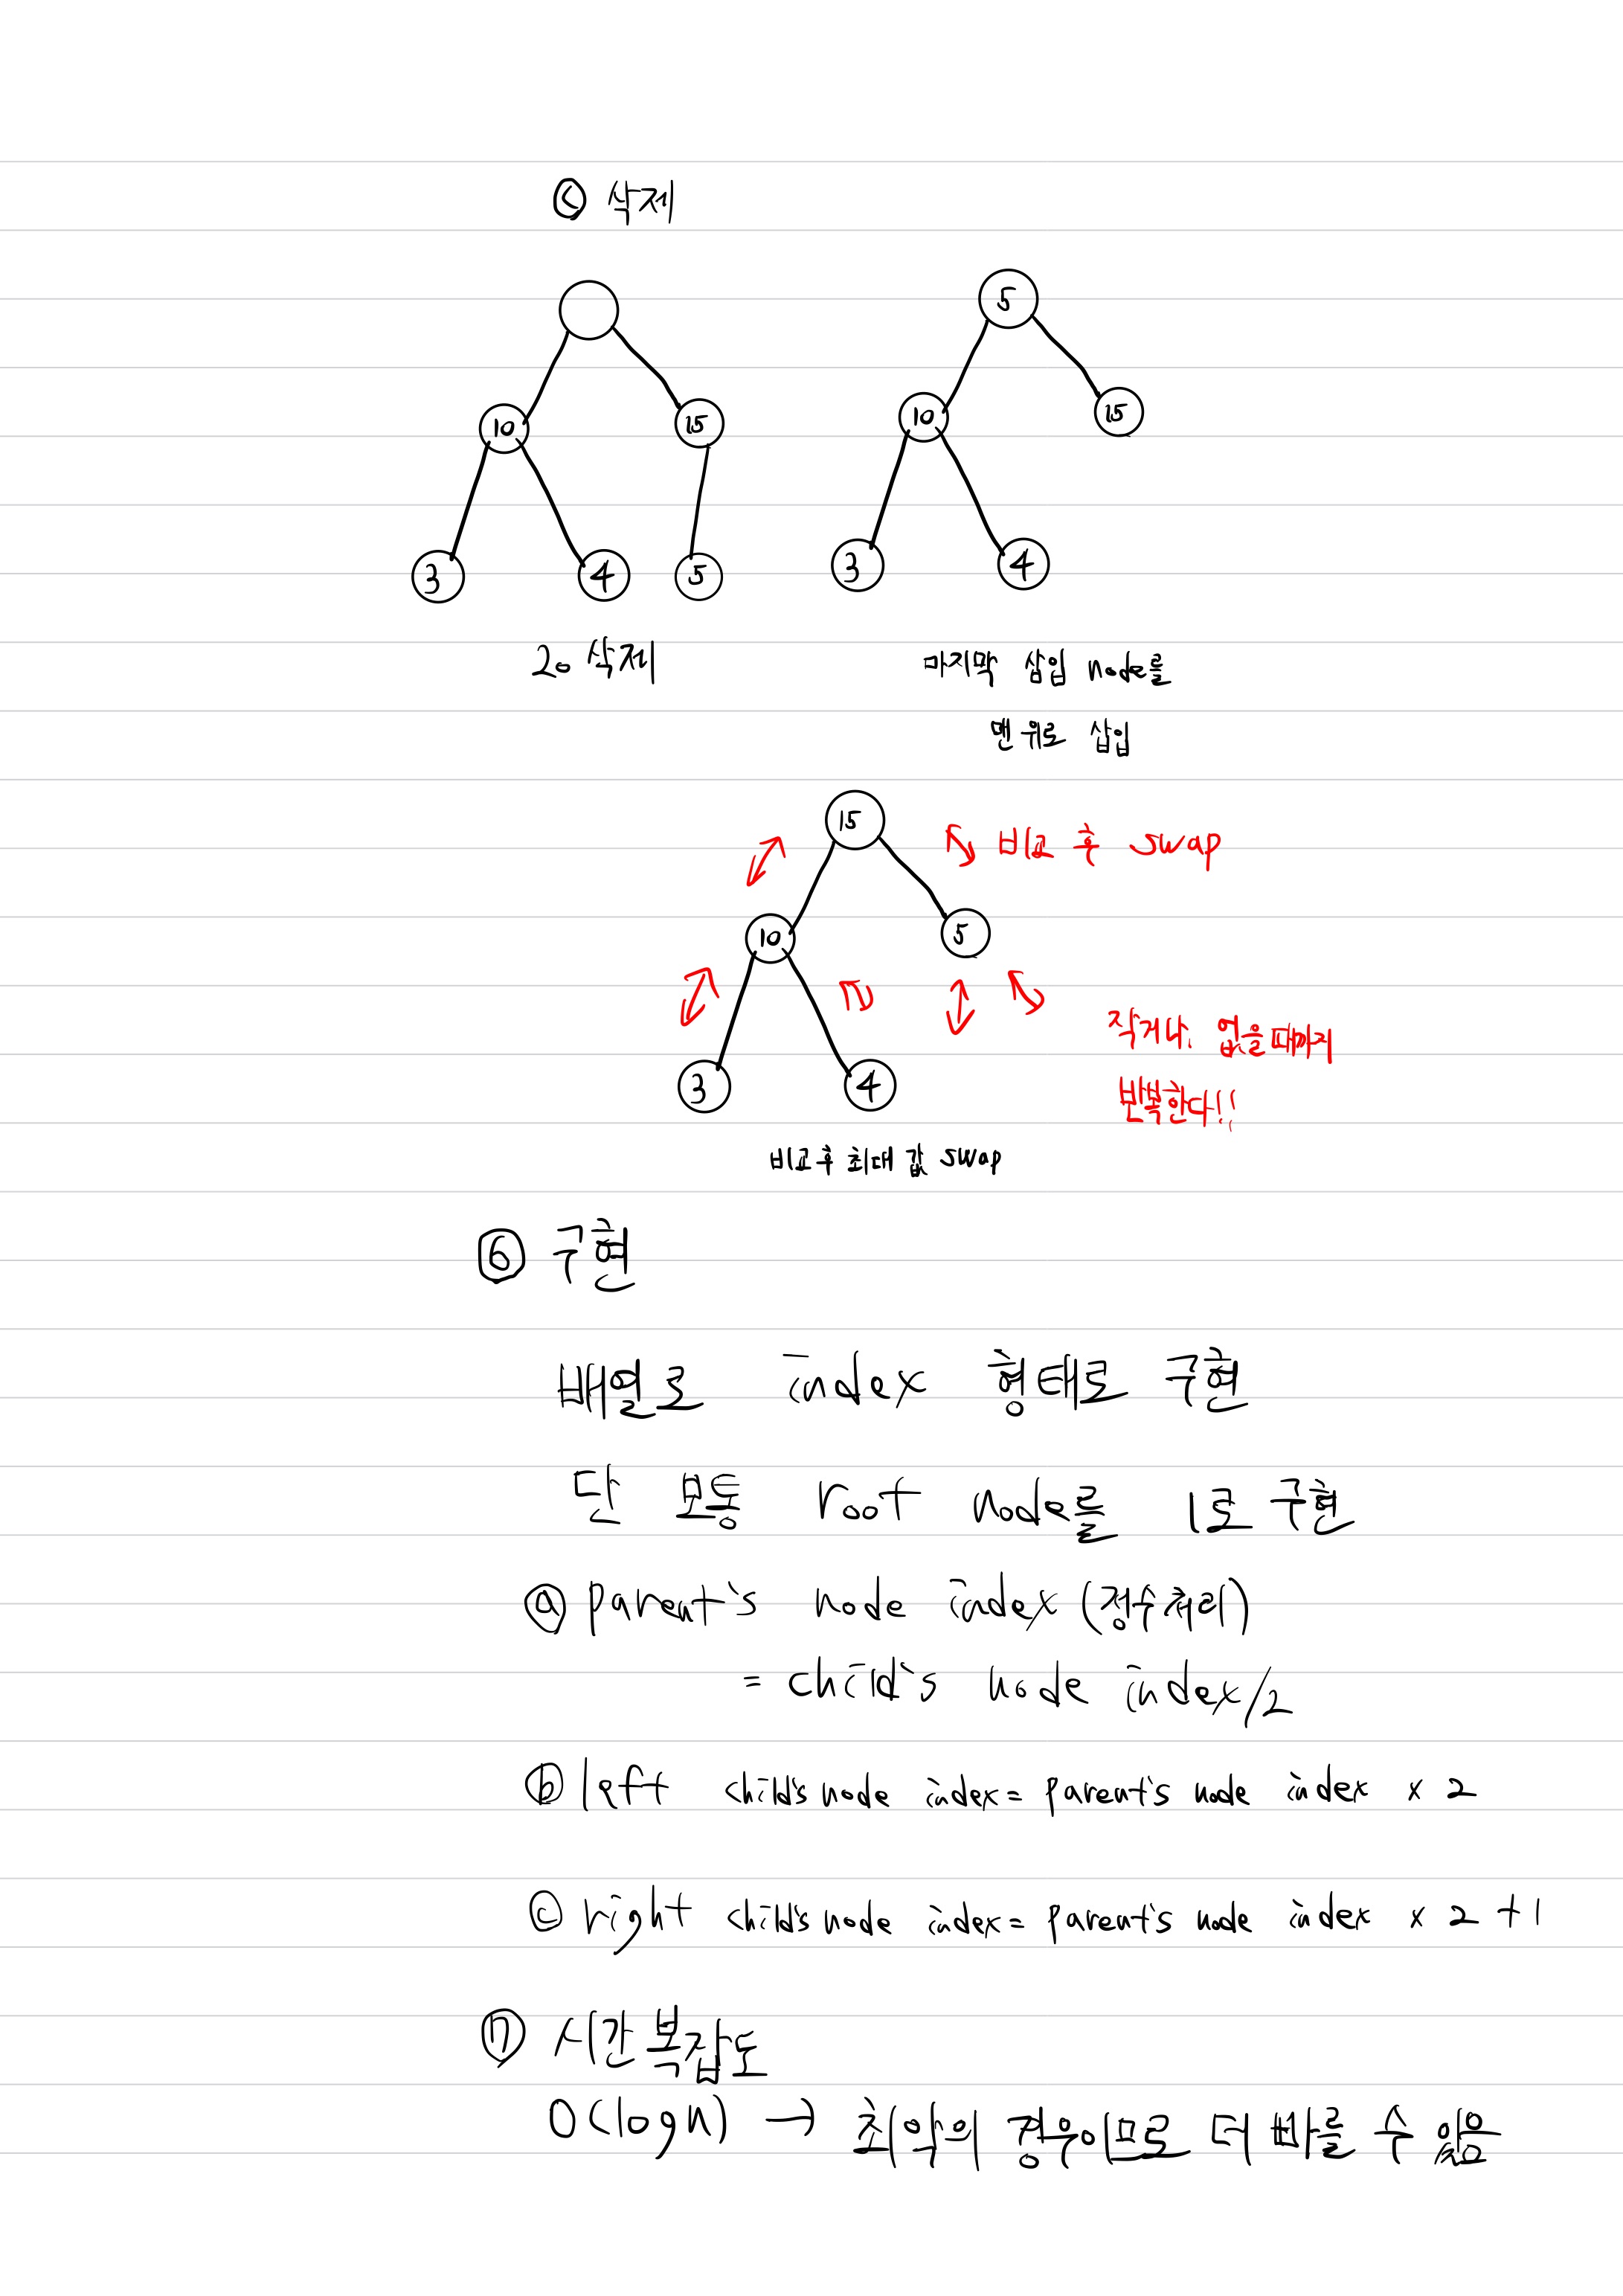 ⓒ 삭제
5
10 15
10 15
3 4 5
3 4
20 삭제
마지막 삽입 node를
맨 위로 삽입
15
비교 후 swap
10 5
작거나, 없을때까지
반복한다!!
3 4
비교후 최대 값 swap
⑥ 구현
배열로 index 형태로 구현
단 보통 root node를 1로 구현
ⓐ parent's node index (정수처리)
= child's node index/2
ⓑ left child's node index = parent's node index × 2
ⓒ right child's node index = parent's node index × 2 + 1
⑦ 시간 복잡도
O(logn) → 최악의 경우이므로 더 빠를 수 있음